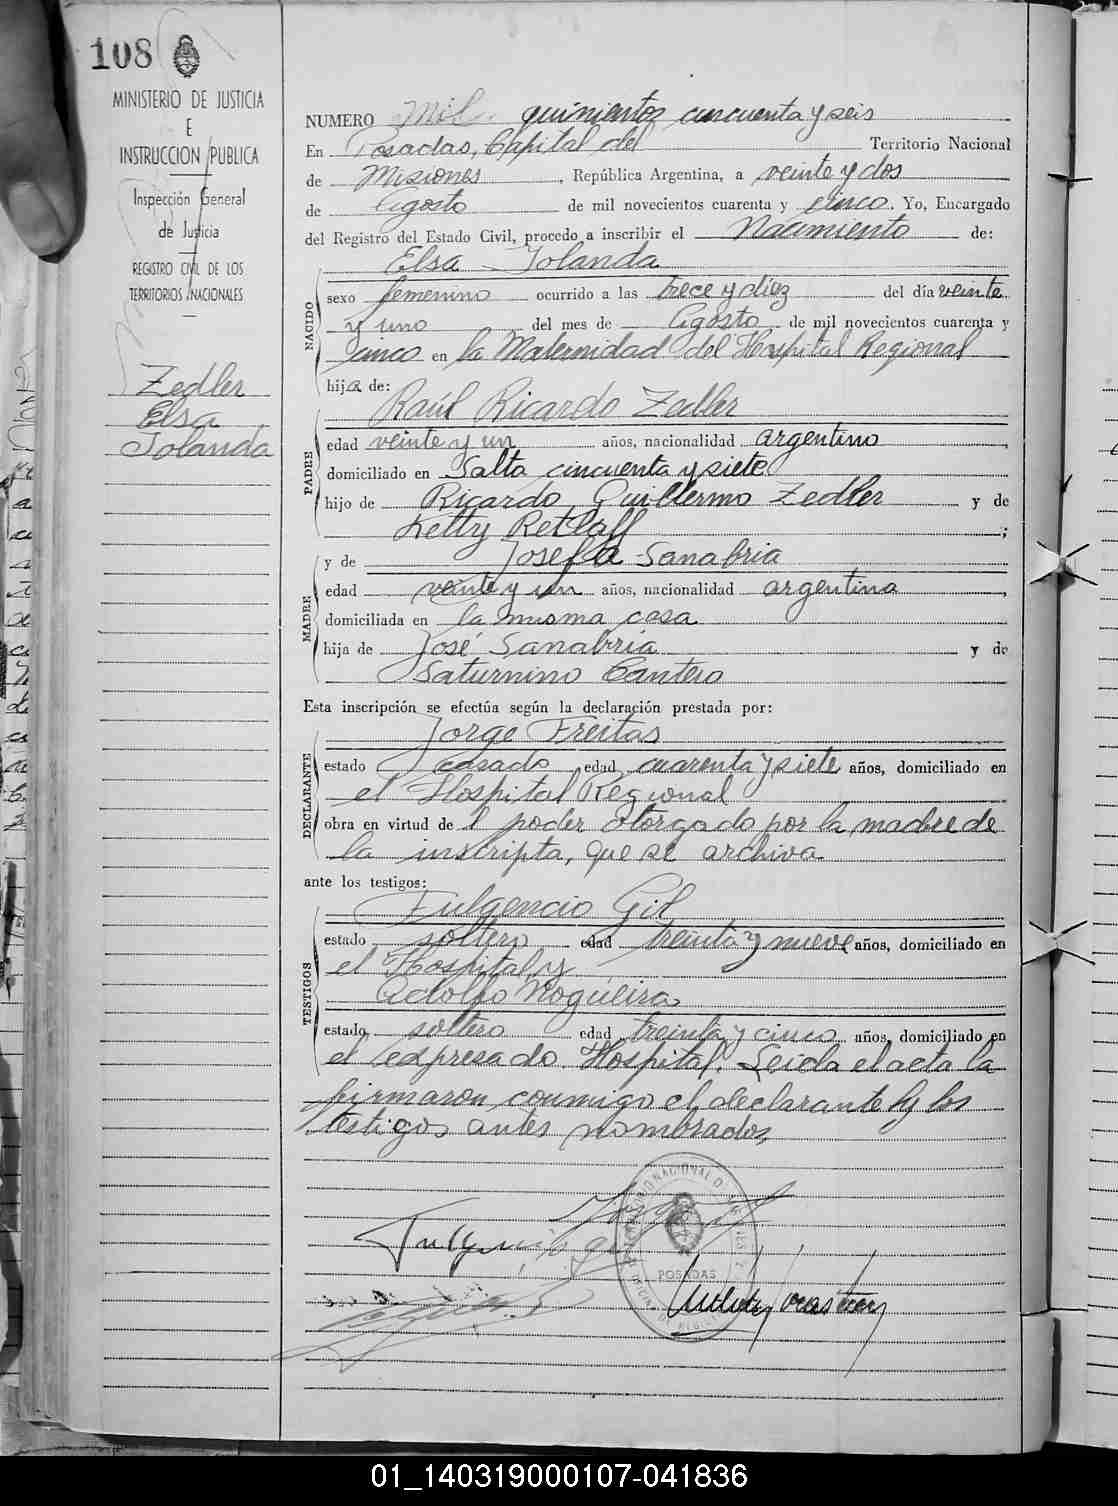 108
MINISTERIO DE JUSTICIA
E
INSTRUCCION PUBLICA
Inspección General
de Justicia
REGISTRO CIVIL DE LOS
TERRITORIOS NACIONALES
Zedler
Elsa
Iolanda
NUMERO Mil quinientos cincuenta y seis
En Posadas, Capital del Territorio Nacional
de Misiones, República Argentina, a veinte y dos
de Agosto de mil novecientos cuarenta y cinco. Yo, Encargado
del Registro del Estado Civil, procedo a inscribir el Nacimiento de:
Elsa Iolanda
NACIDO
sexo femenino ocurrido a las trece y diez del día veinte
y uno del mes de Agosto de mil novecientos cuarenta y
cinco en la Maternidad del Hospital Regional
hija de:
Raúl Ricardo Zedler
PADRE
edad veinte y un años, nacionalidad argentino,
domiciliado en Salta cincuenta y siete
hijo de Ricardo Guillermo Zedler y de
Ketty Retlaff;
y de Josefa Sanabria
MADRE
edad veinte y un años, nacionalidad argentina,
domiciliada en la misma casa
hija de José Sanabria y de
Saturnino Cantero
Esta inscripción se efectúa según la declaración prestada por:
Jorge Freitas
DECLARANTE
estado casado, edad cuarenta y siete años, domiciliado en
el Hospital Regional
obra en virtud de l poder otorgado por la madre de
la inscripta, que se archiva
ante los testigos:
Fulgencio Gil
TESTIGOS
estado soltero edad treinta y nueve años, domiciliado en
el Hospital y
Adolfo Nogueira
estado soltero edad treinta y cinco años, domiciliado en
el expresado Hospital. Leida el acta la
firmaron conmigo el declarante y los
testigos antes nombrados,
POSADAS
01_140319000107-041836